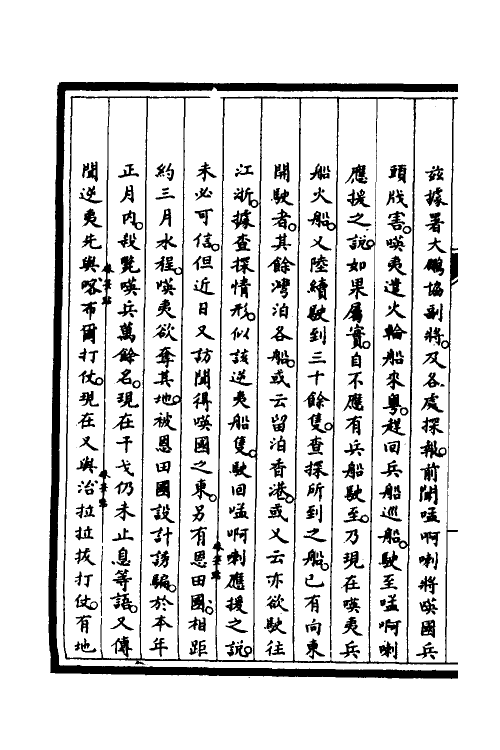 茲據署大鵬協副將。及各處探報。前聞嗌啊喇將𠸄國兵
頭戕害。𠸄夷遣火輪船來粵。趕回兵船巡船。駛至嗌啊喇
應援之說。如果屬實。自不應有兵船駛至。乃現在𠸄夷兵
船火船。又陸續駛到三十餘隻。查探所到之船。已有向東
開駛者。其餘灣泊各船。或云留泊香港。或又云亦欲駛往
江浙。據查探情形。似該逆夷船隻。駛回嗌啊喇應援之說。
未必可信。但近日又訪聞得𠸄國之東。另有恩田國。相距
約三月水程。𠸄夷欲奪其地。被恩田國設計誘騙。於本年
正月內。殺斃𠸄兵萬餘名。現在干戈仍未止息等語。又傳
聞逆夷先與喀布爾打仗。現在又與治拉拉拔打仗。有地
硃筆點
硃筆點
硃筆點